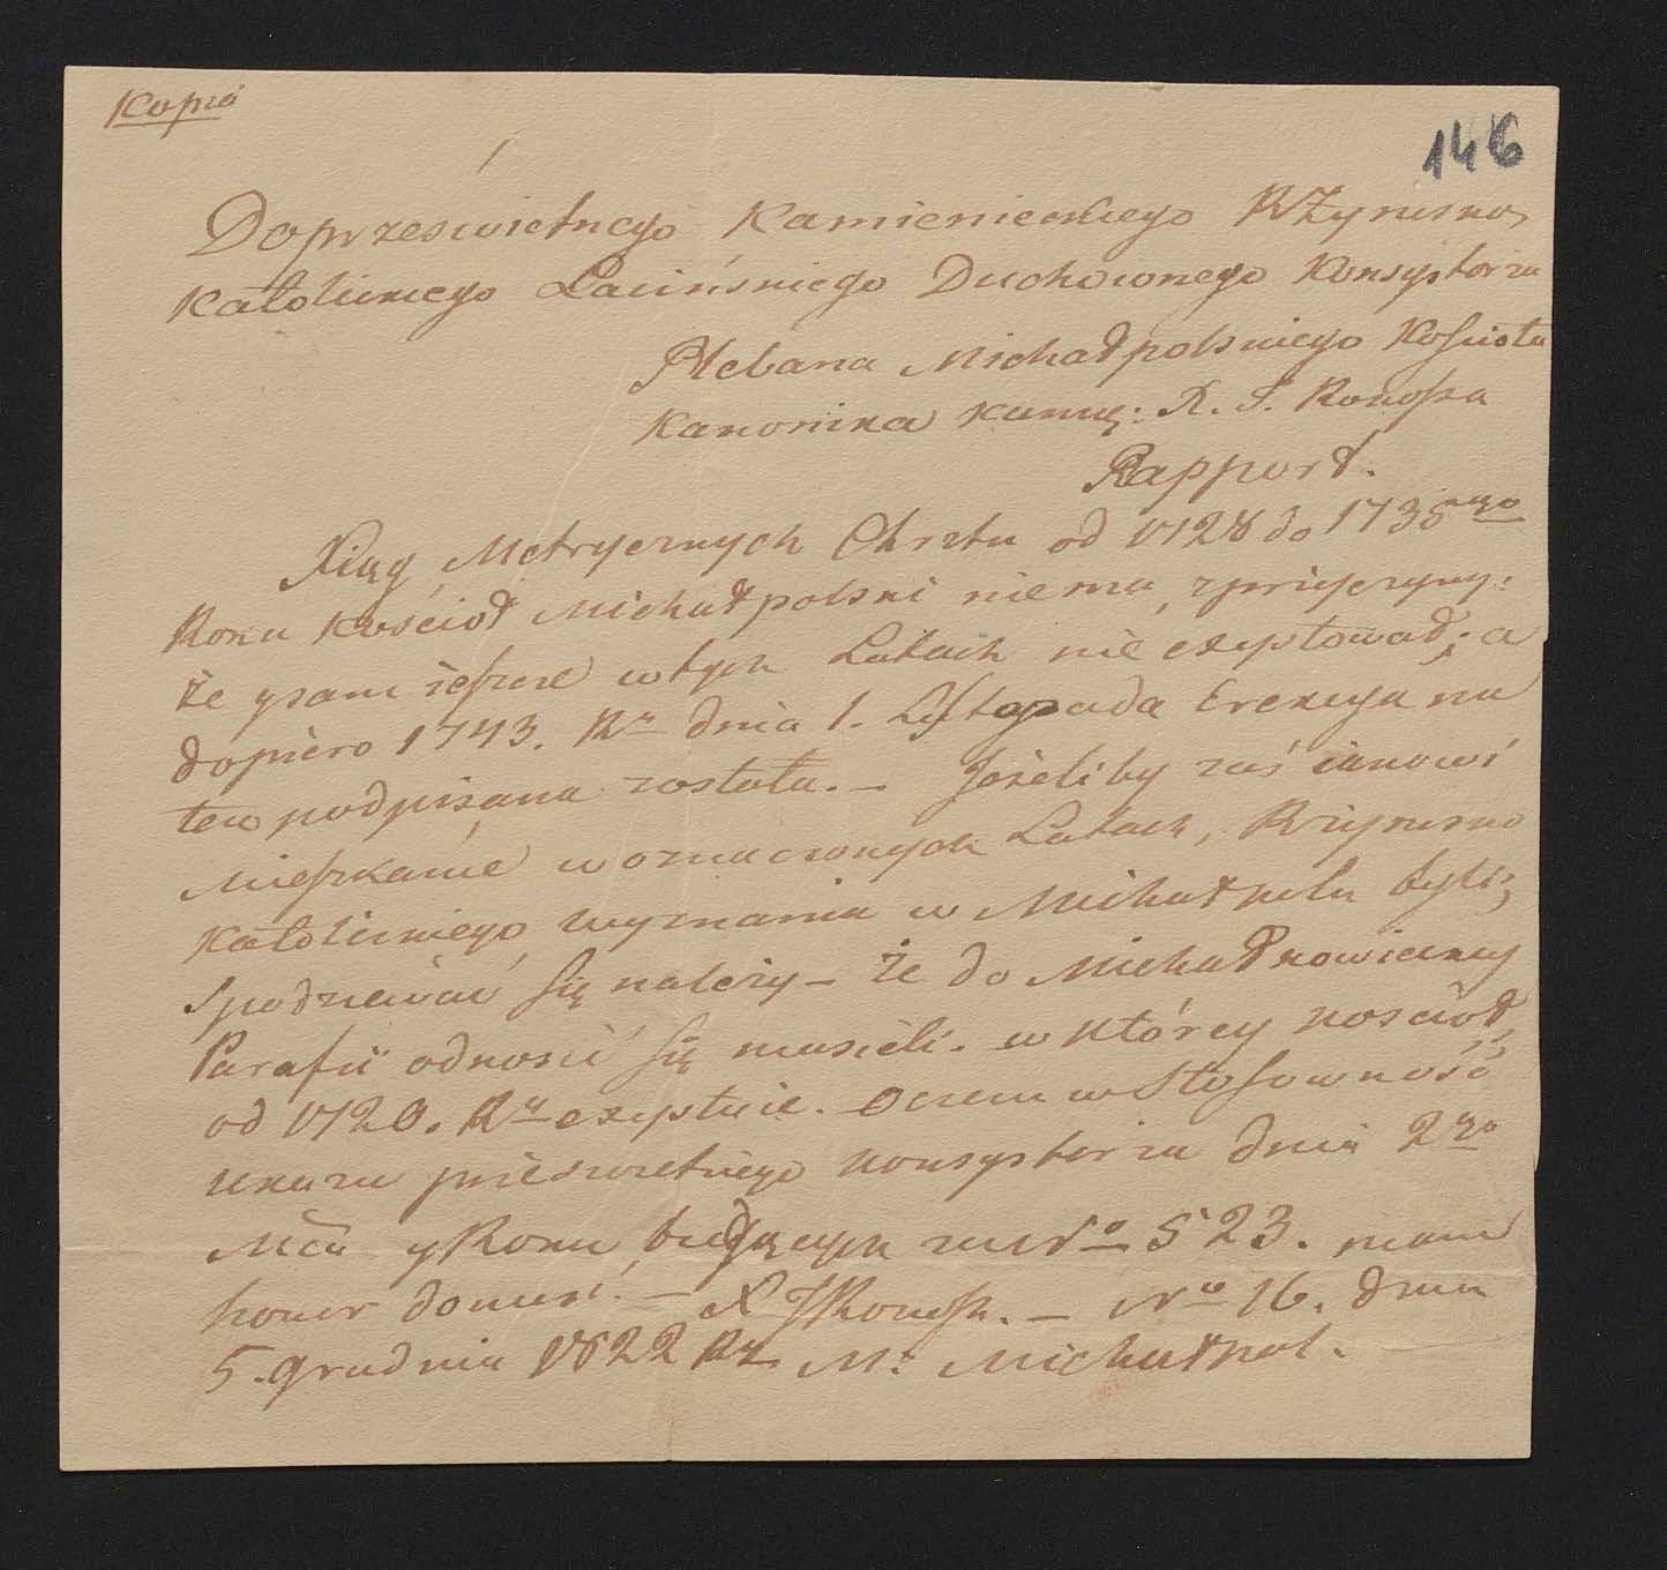 Kopia
146
Do prześwietnego Kamienieckiego RZymsko
Katolickiego Łacińskiego Duchownego Konsystorza
Plebana Michałpolskiego Kościoła
Kanonika Kamię: X. J.
Rapport.
Xiąg Metrycznych Chrztu od 1728 do 1738go
Roku Kościoł Michałpolski niema, zprzyczyny:
że ysam ieszcze wtych Latach nie exystował; a
dopiero 1743. Rᵘ dnia 1. Listopada Erekcya na
ten podpisana została. — Jeżeliby zaś
Mieszkańce woznaczonych Latach, Rzymsko
Katolickiego wyznania w Michałpolu byli;
Spodziewać się należy – że do Michałkowieckiey
Parafii odnosić się musieli. w którey kościoł
od 1720. Rᵘ exystuie. Oczem wStosowność
ukazu prześwietnego konsystorza dnia 2go
Mca yRoku bieżących zaNᵒ 523. mam
honor donieść. — X — Nᵒ 16. dnia
5. grudnia 1822 Rᵘ M: Michałpol.